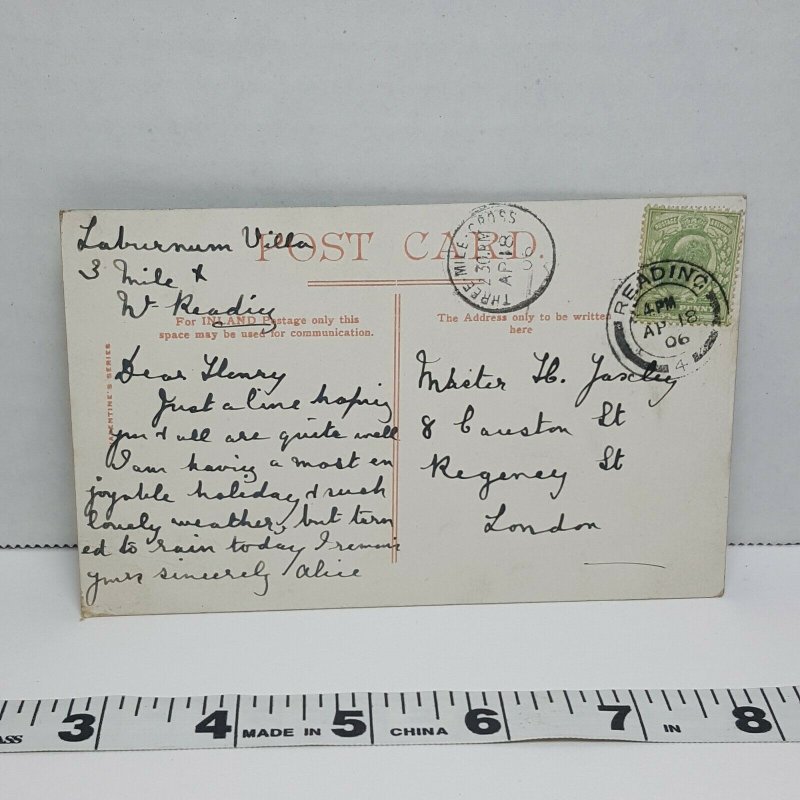 POST CARD.
Laburnum Villa
3 Mile X
Nr Reading
For INLAND Postage only this
space may be used for communication.
The Address only to be written
here
VALENTINE'S SERIES
THREE-MILE-CROSS
2.30PM
AP 18
06
READING
4.PM
AP 18
06
4
Dear Henry
Just a line hoping
you & all are quite well
I am having a most en
joyable holiday & such
lovely weather, but turn
ed to rain today I remain
yours sincerely Alice
Master H. Yaxley
8 Causton St
Regency St
London
3 4 MADE IN 5 CHINA 6 7 IN 8